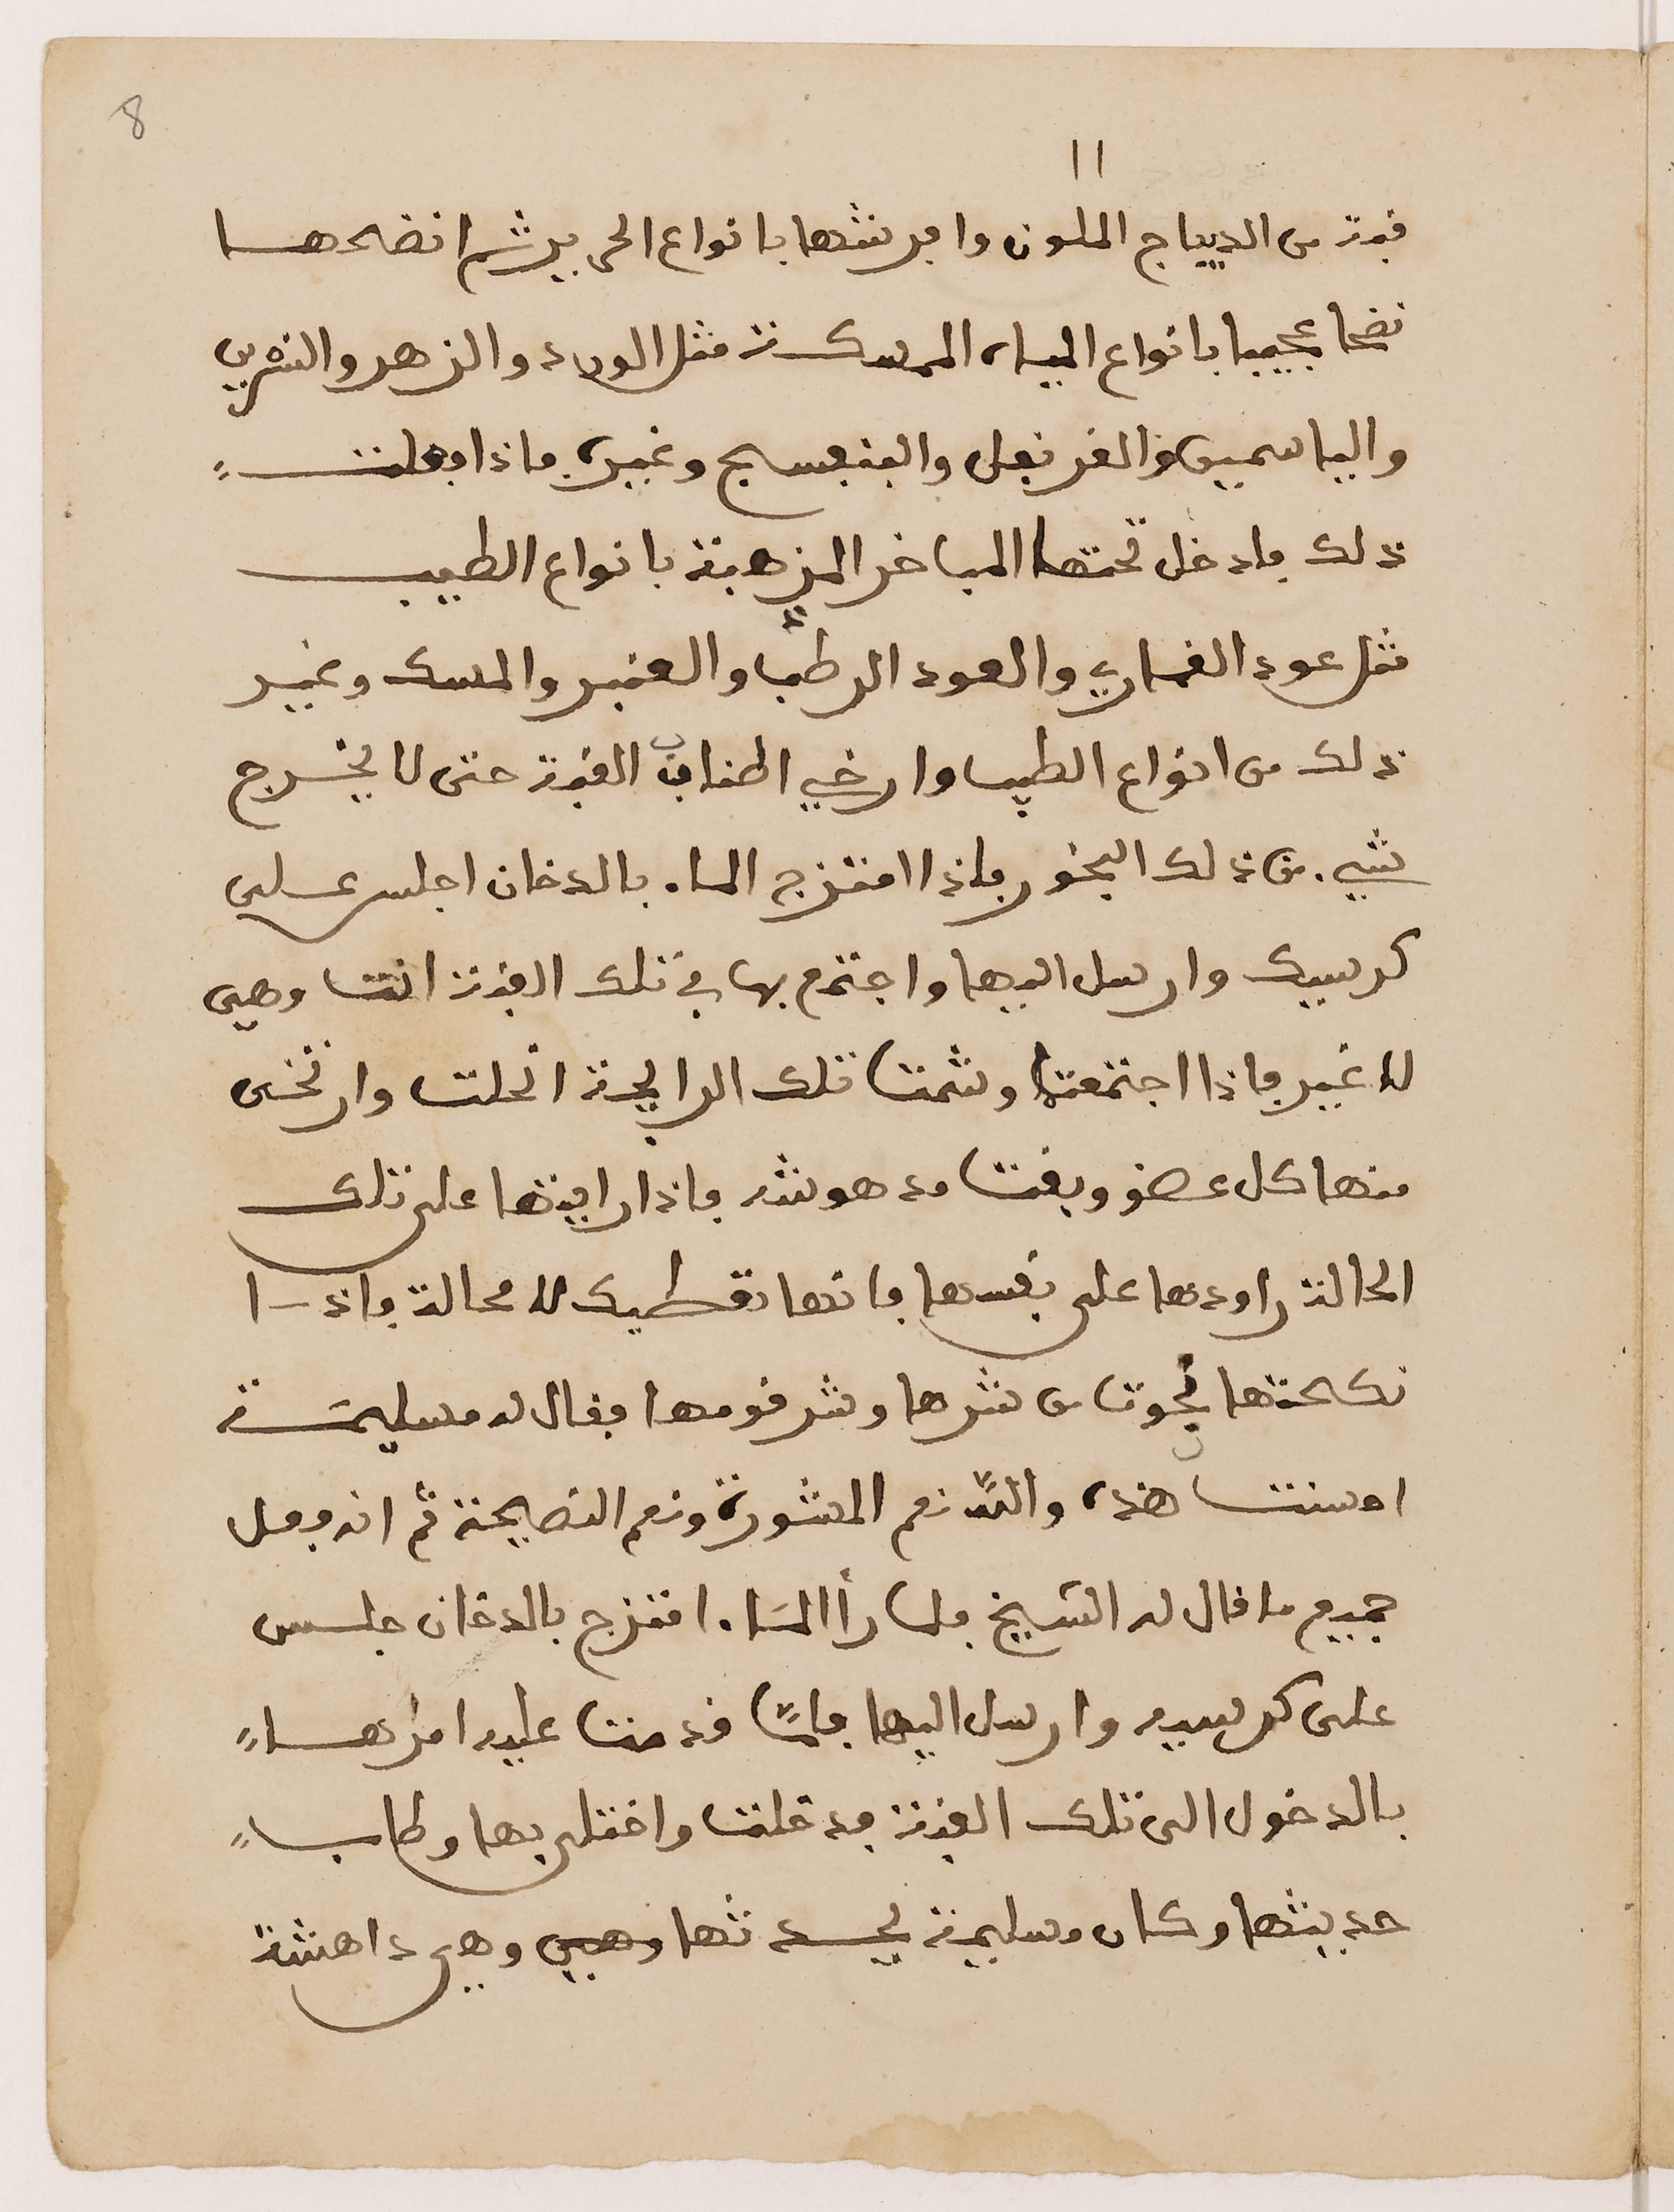 8
١١
قبة من الديباج الملون وافرشها بانواع الحرير ثم انضحها
نضحا عجيبا بانواع المياه الممسكة مثل الورد والزهر والنسرين
والياسمين والقرنفل والبنفسج وغيره فاذا فعلت
ذلك فادخل تحتها المباخر المذهبة بانواع الطيب
مثل عود القماري والعود الرطب والعنبر والمسك وغير
ذلك من انواع الطيب وارخي اطناب القبة حتى لا يخرج
شيء من ذلك البخور فاذا امتزج الماء بالدخان اجلس على
كرسيك وارسل اليها واجتمع بها في تلك القبة انت وهي
لا غير فاذا اجتمعتا وشمت تلك الرايحة انحلت وارتخى
منها كل عضو وبقت مدهوشه فاذا رايتها على تلك
الحالة راودها على نفسها فانها تعطيك لا محالة فاذا
نكحتها نجوت من شرها وشر قومها فقال له مسليمة
احسنت هذه والله نعم المشورة ونعم النصيحة ثم انه فعل
جميع ما قال له الشيخ فلما رأا الماء امتزج بالدخان جلس
على كرسيه وارسل اليها فلما قدمت عليه امرها
بالدخول الى تلك القبة فدخلت واختلى بها وطاب
حديثها وكان مسليمة يحدثها وهي وهي داهشة